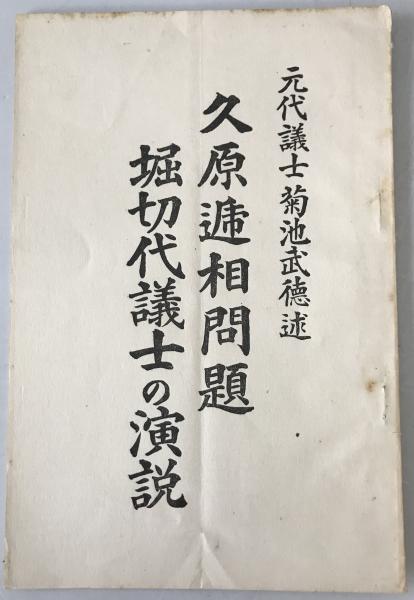 元代議士菊池武德述
久原逓相問題
堀切代議士の演説